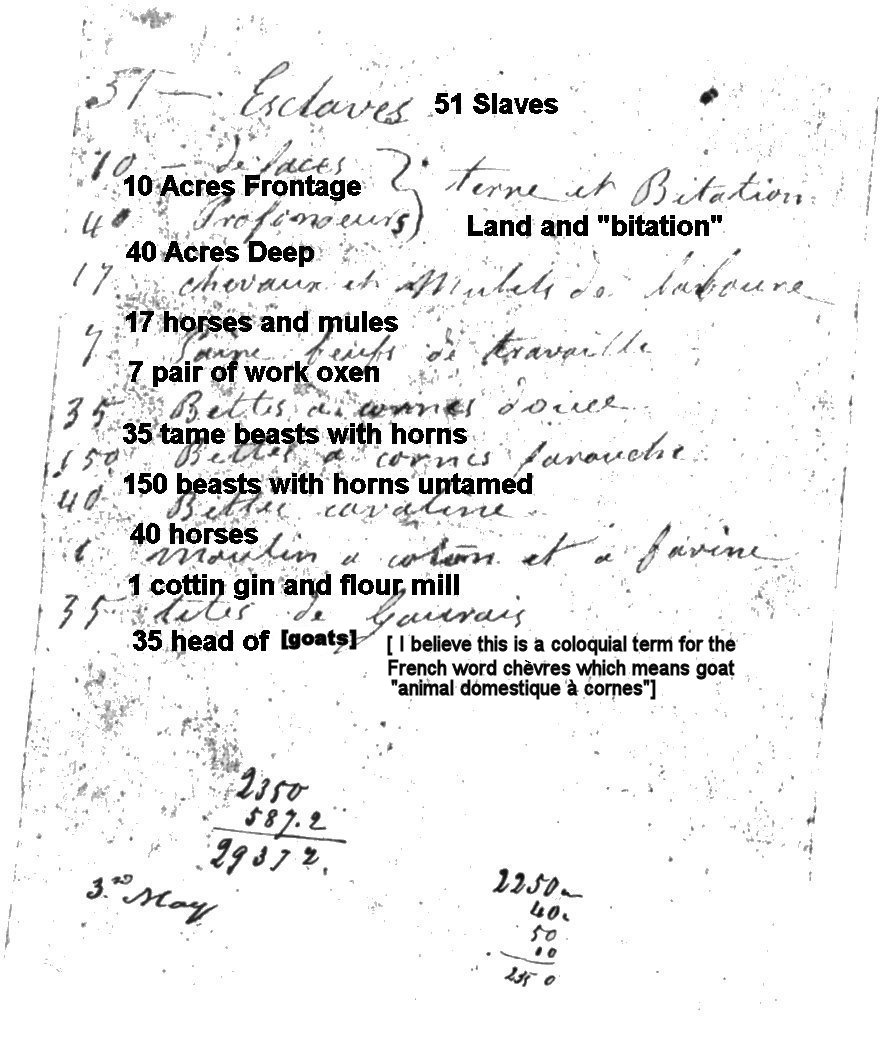 51 — Esclaves 51 Slaves
10 — de faces } terre et Bitation
10 Acres Frontage
40 Profondeurs Land and "bitation"
40 Acres Deep
17 chevaux et Mulets de laboure
17 horses and mules
7 Paire beufs de travaille
7 pair of work oxen
35 Bettes a cornes douce
35 tame beasts with horns
150 Bettes a cornes farouche
150 beasts with horns untamed
40 Bettes cavaline
40 horses
1 moulin a coton et a farine
1 cottin gin and flour mill
35 tetes de
35 head of [goats] [ I believe this is a coloquial term for the
French word chèvres which means goat
"animal domestique à cornes"]
2350
587.2
2937 2.
3.rd May
2250
40
50
10
2350